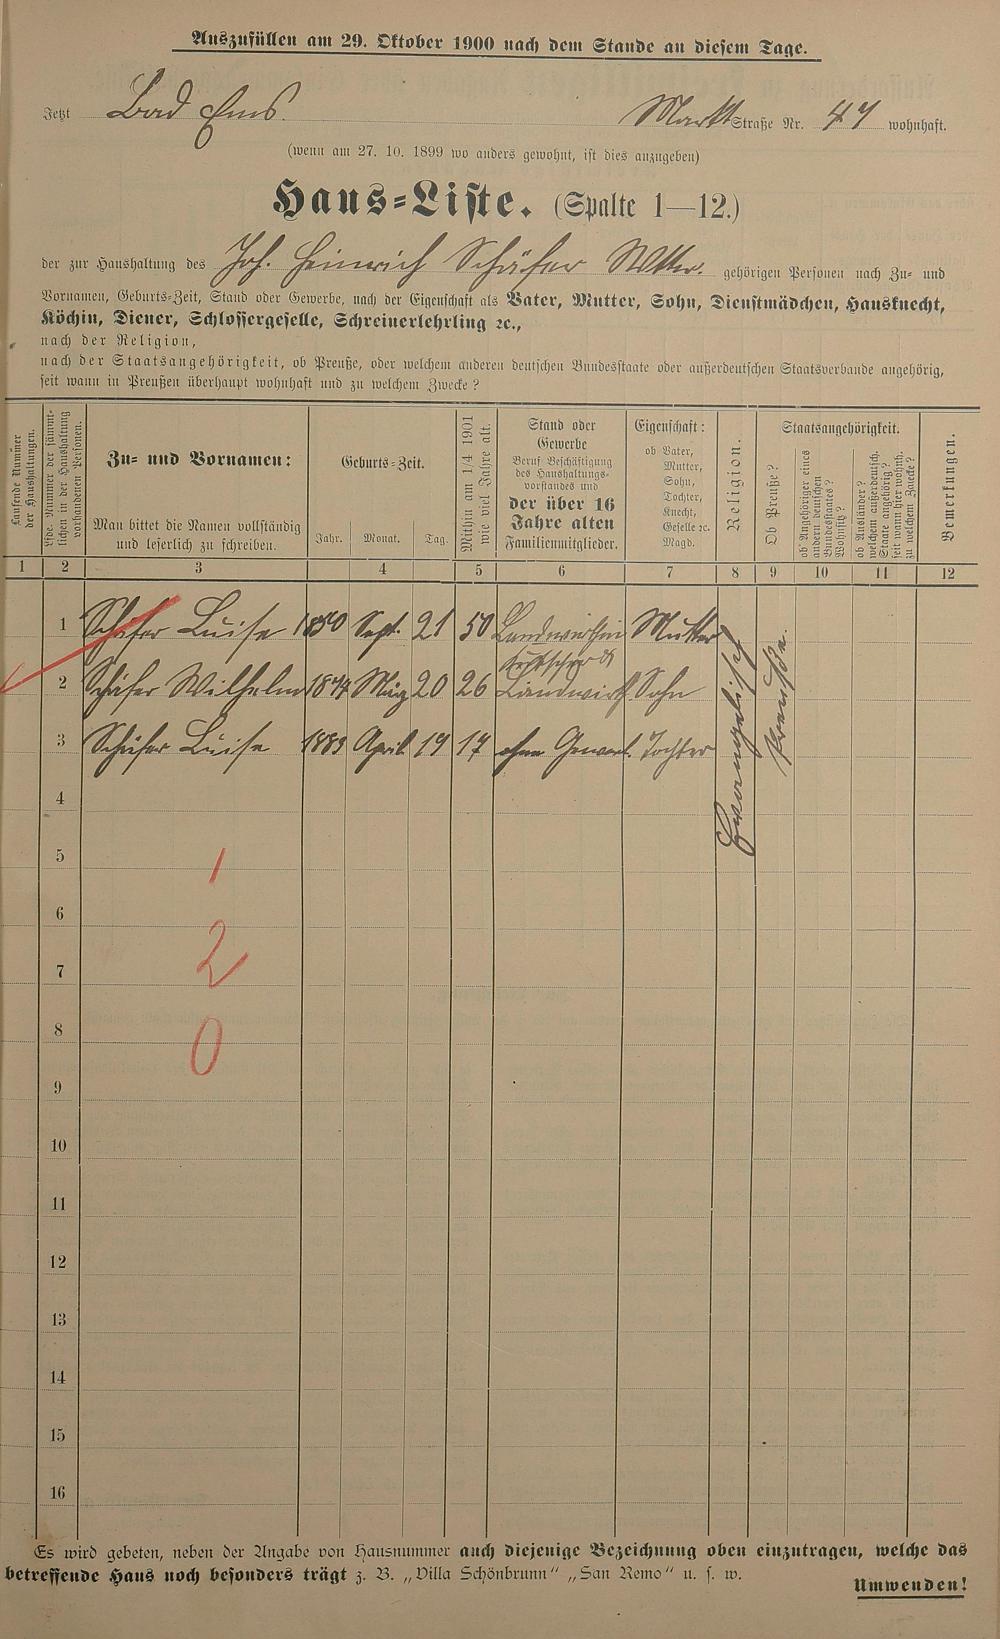 Auszufüllen am 29. Oktober 1900 nach dem Stande an diesem Tage.
Jetzt Bad Ems. Markt Straße Nr. 47 wohnhaft.
(wenn am 27. 10. 1899 wo anders gewohnt, ist dies anzugeben)
Haus-Liste. (Spalte 1—12.)
der zur Haushaltung des Joh. Heinrich Schäfer Wtw. gehörigen Personen nach Zu- und
Vornamen, Geburts-Zeit, Stand oder Gewerbe, nach der Eigenschaft als Vater, Mutter, Sohn, Dienstmädchen, Hausknecht,
Köchin, Diener, Schlossergeselle, Schreinerlehrling ꝛc.,
nach der Religion,
nach der Staatsangehörigkeit, ob Preuße, oder welchem anderen deutschen Bundesstaate oder außerdeutschen Staatsverbande angehörig,
seit wann in Preußen überhaupt wohnhaft und zu welchem Zwecke?
Laufende Nummer der Haushaltungen.
Lfde. Nummer der sämmtlichen in der Haushaltung vorhandenen Personen.
Zu- und Vornamen:
Man bittet die Namen vollständig
und leserlich zu schreiben.
Geburts-Zeit.
Jahr. Monat. Tag.
Mithin am 1/4 1901
wie viel Jahre alt.
Stand oder
Gewerbe
Beruf Beschäftigung
des Haushaltungs-
vorstandes und
der über 16
Jahre alten
Familienmitglieder.
Eigenschaft:
ob Vater,
Mutter,
Sohn,
Tochter,
Knecht,
Geselle ꝛc.
Magd.
Religion.
Staatsangehörigkeit.
Ob Preuße?
ob Angehöriger eines
andern deutschen
Bundesstaates?
Wohnsitz?
ob Ausländer?
welchem außerdeutsch.
Staate angehörig?
seit wann hier wohnh.
zu welchem Zwecke?
Bemerkungen.
1 2 3 4 5 6 7 8 9 10 11 12
1 Schäfer Luise 1850 Sept. 21 50 Landwirthin Mutter
Kutscher &
2 Schäfer Wilhelm 1874 März 20 26 Landwirth Sohn
3 Schäfer Luise 1883 April 19 17 ohne Gewerb. Tochter
Evangelisch
Preuße.
4
5
1
6
2
7
8
0
9
10
11
12
13
14
15
16
Es wird gebeten, neben der Angabe von Hausnummer auch diejenige Bezeichnung oben einzutragen, welche das
betreffende Haus noch besonders trägt z. B. „Villa Schönbrunn“ „San Remo“ u. s. w.
Umwenden!